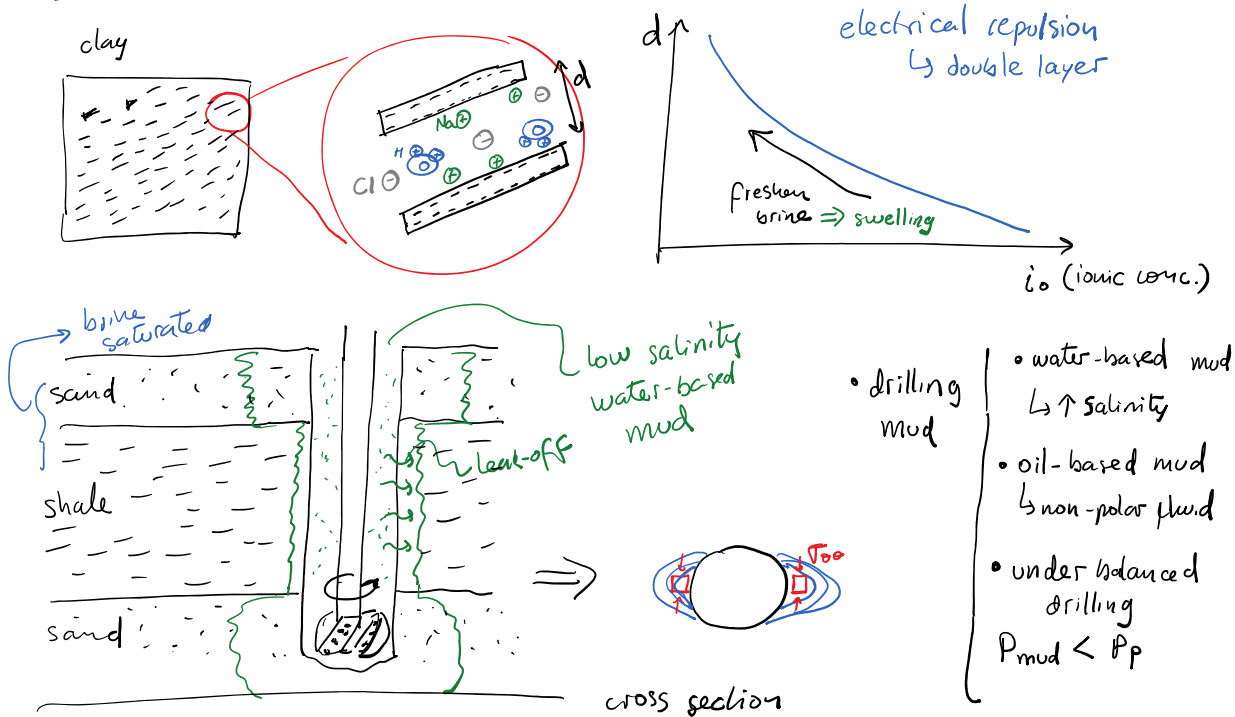 clay
d
Na
H
Cl
d
electrical repulsion
↳ double layer
freshen
brine ⇒ swelling
i₀ (ionic conc.)
brine
saturated
sand
shale
sand
low salinity
water-based
mud
leak-off
σθθ
cross section
• drilling
mud
• water-based mud
↳ ↑ salinity
• oil-based mud
↳ non-polar fluid
• under balanced
drilling
Pmud < Pp